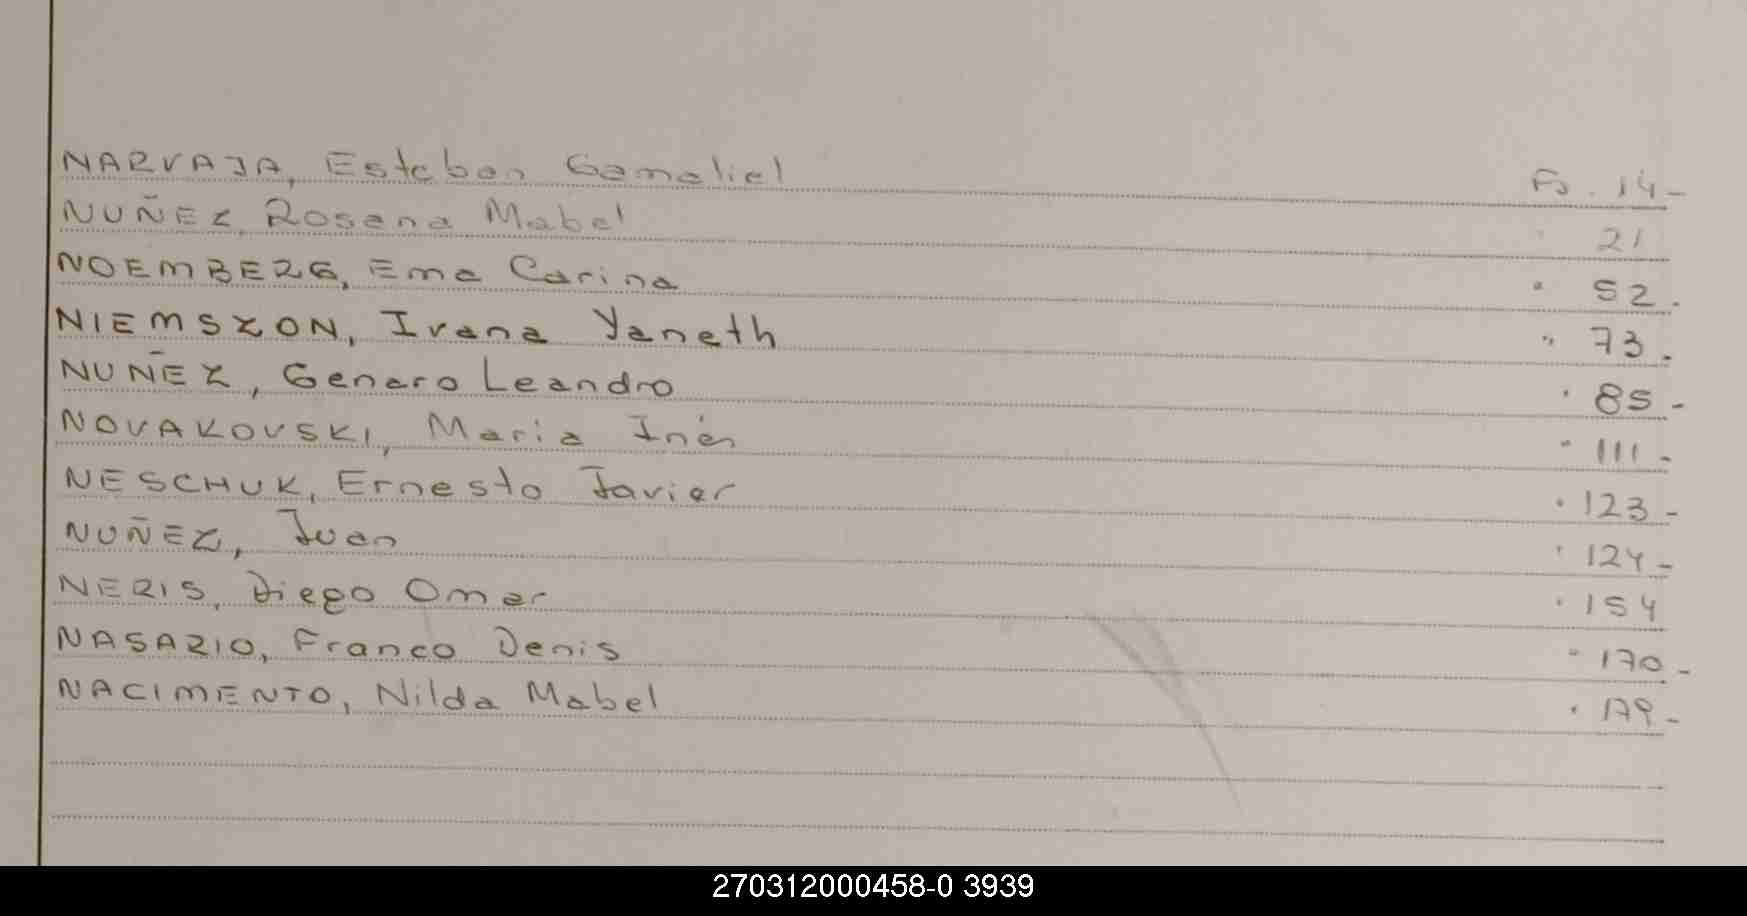 NARVAJA, Esteban Gamaliel Fo. 14-
NUÑEZ, Rosana Mabel " 21
NOEMBERG, Ema Carina " 52.
NIEMSZON, Ivana Yaneth " 73.
NUÑEZ, Genaro Leandro " 85-
NOVAKOVSKI, Maria Inés " 111-
NESCHUK, Ernesto Javier " 123-
NUÑEZ, Juan " 124-
NERIS, Diego Omar " 154
NASARIO, Franco Denis " 170-
NACIMENTO, Nilda Mabel " 179-
270312000458-0 3939